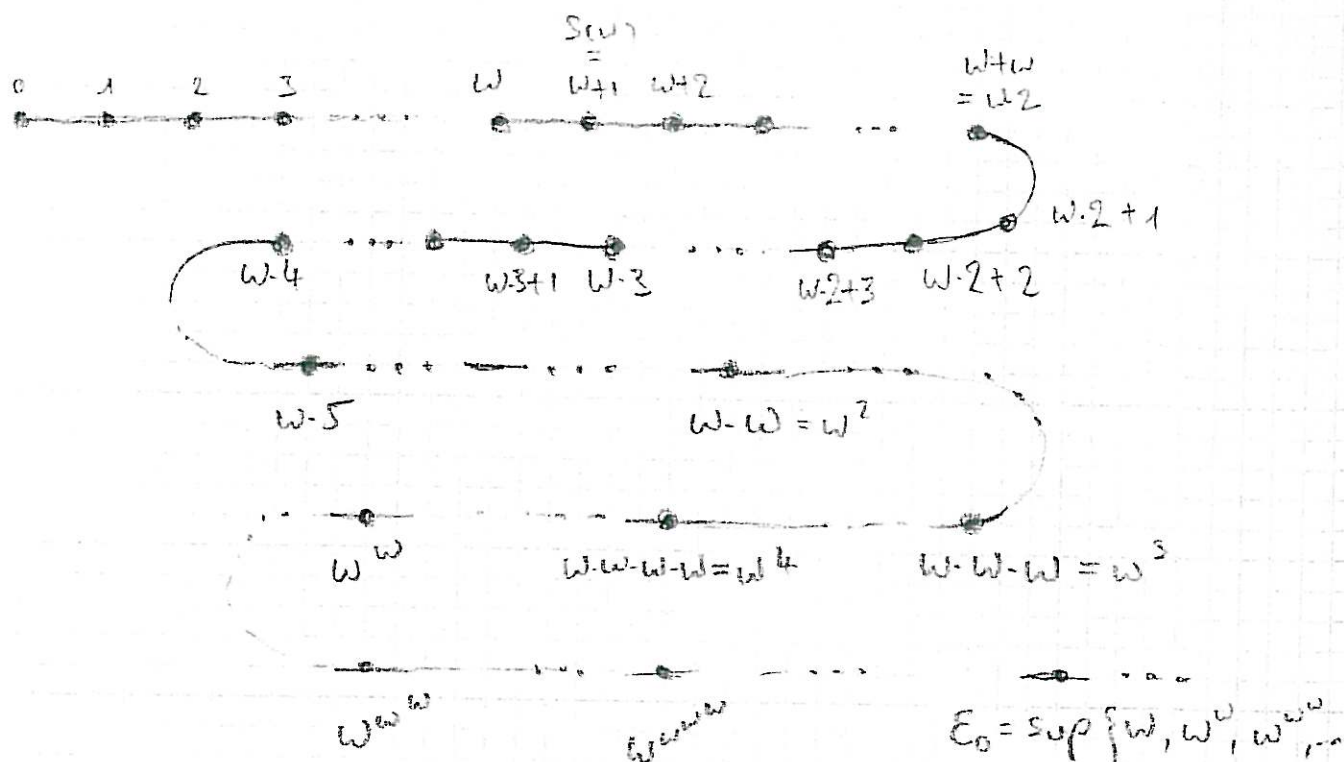 S(ω)
=
0 1 2 3 .... ω ω+1 ω+2 ... ω+ω
= ω2
ω·2+1
ω·4 ... ω·3+1 ω·3 .... ω·2+3 ω·2+2
ω·5 ... ... ω·ω = ω²
ω^ω ω·ω·ω·ω = ω⁴ ω·ω·ω = ω³
ω^ω^ω ω^ω^ω^ω ε₀ = sup {ω, ω^ω, ω^ω^ω, ...